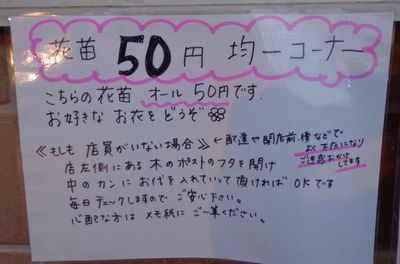 花苗 50円 均一コーナー
こちらの花苗 オール 50円です.
お好きな お花をどうぞ
≪もしも 店員がいない場合≫ ← 配達や開店前.後などで
よく不在になり
ご迷惑おかけ
してます
店左側にある 木のポストのフタを開け
中のカンに お代を入れていって頂ければ OKです
毎日チェックしますので ご安心下さい。
心配な方は メモ紙に ご一筆ください。